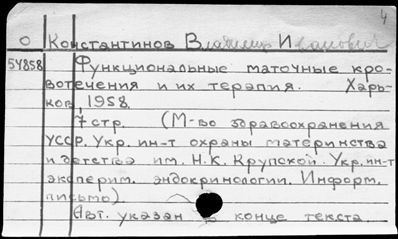 4
О Константинов Владимир Иванович
54858 Функциональные маточные кро-
вотечения и их терапия. Харь-
ков, 1958.
7 стр. (М-во здравоохранения
УССР. Укр. ин-т охраны материнства
и детства им. Н.К. Крупской. Укр. ин-т
эксперим. эндокринологии. Информ.
письмо).
Авт. указан в конце текста